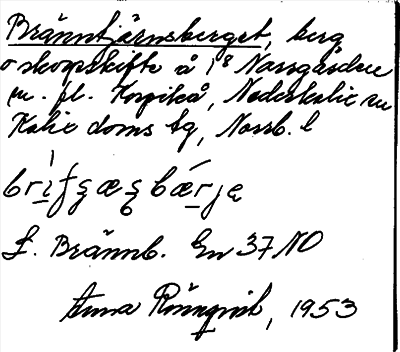 Bränntjärnsberget, berg
o skogsskifte å 1⁸ Nassgården
m. fl. Korpikå, Nederkalix sn
Kalix doms tg, Norrb. l
L. Brännb. En 37 NO
Anna Rönnqvist, 1953